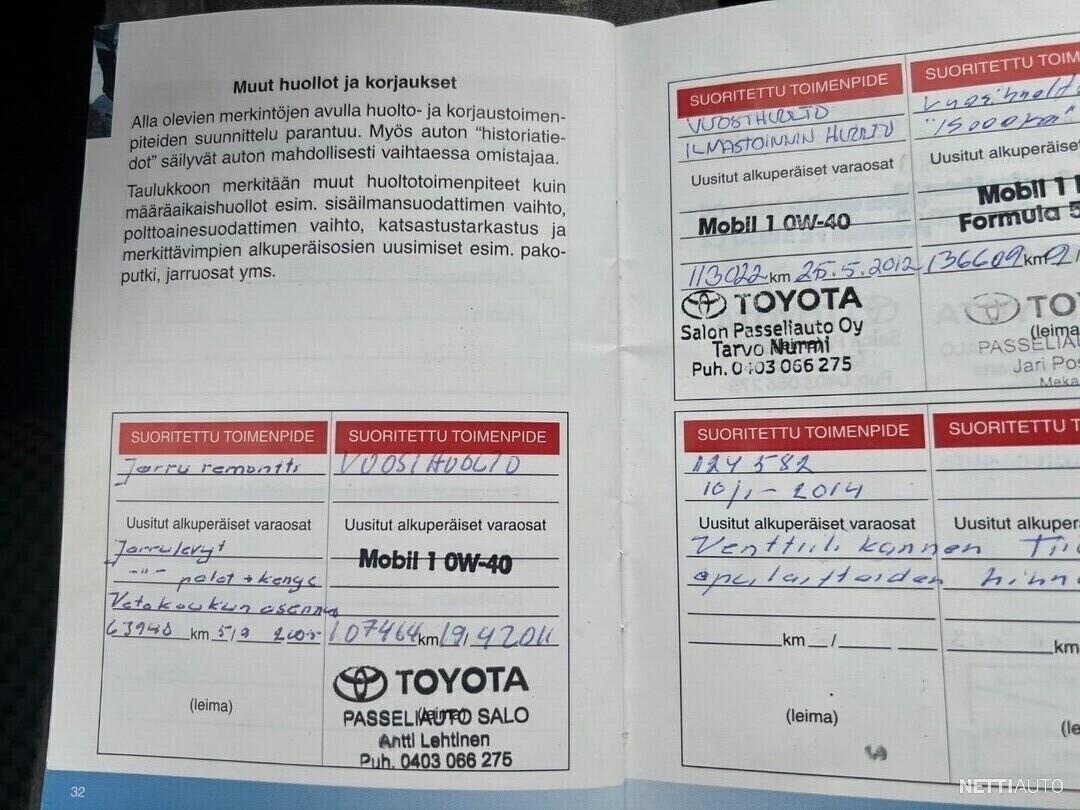 Muut huollot ja korjaukset
Alla olevien merkintöjen avulla huolto- ja korjaustoimen-
piteiden suunnittelu parantuu. Myös auton "historiatie-
dot" säilyvät auton mahdollisesti vaihtaessa omistajaa.
Taulukkoon merkitään muut huoltotoimenpiteet kuin
määräaikaishuollot esim. sisäilmansuodattimen vaihto,
polttoainesuodattimen vaihto, katsastustarkastus ja
merkittävimpien alkuperäisosien uusimiset esim. pako-
putki, jarruosat yms.
SUORITETTU TOIMENPIDE
Jarru remontti
Uusitut alkuperäiset varaosat
Jarrulevyt
-"- palat + kengt
Vetokoukun asennus
63940 km 5/9
(leima)
SUORITETTU TOIMENPIDE
VUOSIHUOLTO
Uusitut alkuperäiset varaosat
Mobil 1 0W-40
107464 km 19/4 2011
TOYOTA
(leima)
PASSELIAUTO SALO
Antti Lehtinen
Puh. 0403 066 275
32
SUORITETTU TOIMENPIDE
VUOSIHUOLTO
ILMASTOINNIN HUOLTO
Uusitut alkuperäiset varaosat
Mobil 1 0W-40
113022 km 25.5.2012
TOYOTA
Salon Passeliauto Oy
Tarvo Nurmi
(leima)
Puh. 0403 066 275
SUORITETTU TOIM
Vuosihuolt
"15000km"
Uusitut alkuperäise
Mobil 1
Formula 5
136609 km
TO
(leima
PASSELIAU
Jari Pos
Meka
SUORITETTU TOIMENPIDE
124 582
10/1 - 2014
Uusitut alkuperäiset varaosat
Venttiili kannen Tii
apulaitteiden hihn
km / 
(leima)
SUORITETTU T
Uusitut alkuper
km
(le
NETTIAUTO